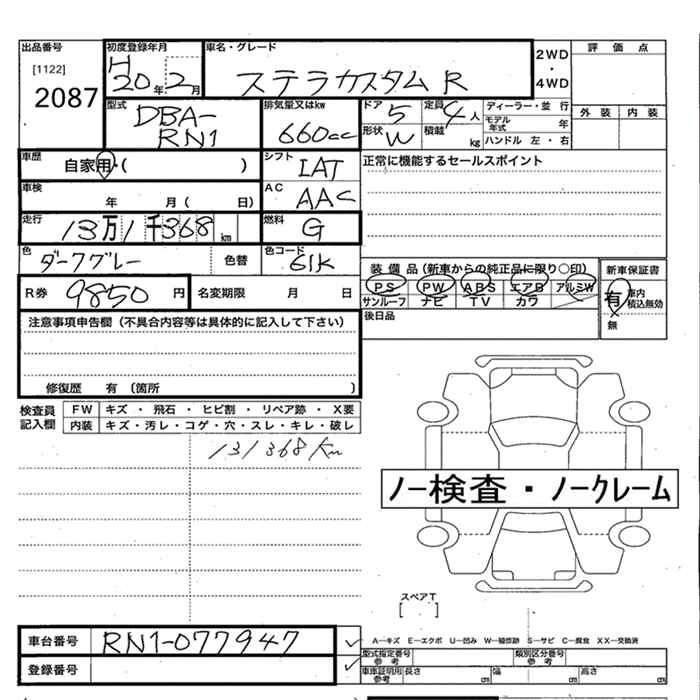 出品番号 初度登録年月 車名・グレード 2WD ・ 4WD 評価点
[1122] H20年2月 ステラカスタム R
2087
型式 DBA-RN1 排気量又はkw 660cc ドア 5 定員 4人 ディーラー・並行 外装 内装
形状 W 積載 kg モデル年式 年
ハンドル 左・右
車歴 自家用・( ) シフト IAT 正常に機能するセールスポイント
車検 年 月( 日) AC AAC
走行 13万1千368km 燃料 G
色 ダークグレー 色替 色コード 61K 装備品(新車からの純正品に限り○印) 新車保証書
R券 9850円 名変期限 月 日 PS PW ABS エアB アルミW 有 車内積込無効
サンルーフ ナビ TV カワ 無
注意事項申告欄(不具合内容等は具体的に記入して下さい) 後日品
修復歴 有(箇所 )
検査員記入欄 FW キズ・飛石・ヒビ割・リペア跡・X要
内装 キズ・汚レ・コゲ・穴・スレ・キレ・破レ
131368Km
ノー検査・ノークレーム
スペアT
[ ]
車台番号 RN1-077947 A―キズ E―エクボ U―凹み W―補修跡 S―サビ C―腐食 XX―交換済
型式指定番号 参考 類別区分番号 参考
登録番号 車庫証明用 参考 長さ cm 幅 cm 高さ cm